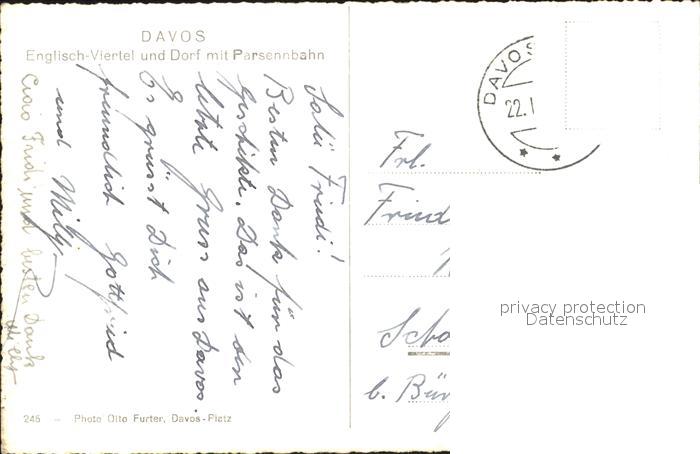 DAVOS
Englisch-Viertel und Dorf mit Parsennbahn
Salü Friedi!
Besten Dank für das
geschikte. Das ist den
letzte Gruss aus Davos.
Es grüsst Dich
freundlich Gottfried
und Milly.
Ciao Fridi und besten Dank
Milly
245 – Photo Otto Furter, Davos-Platz
DAVOS
22.I
Frl.
Fried
Scho
b. Bür
privacy protection
Datenschutz